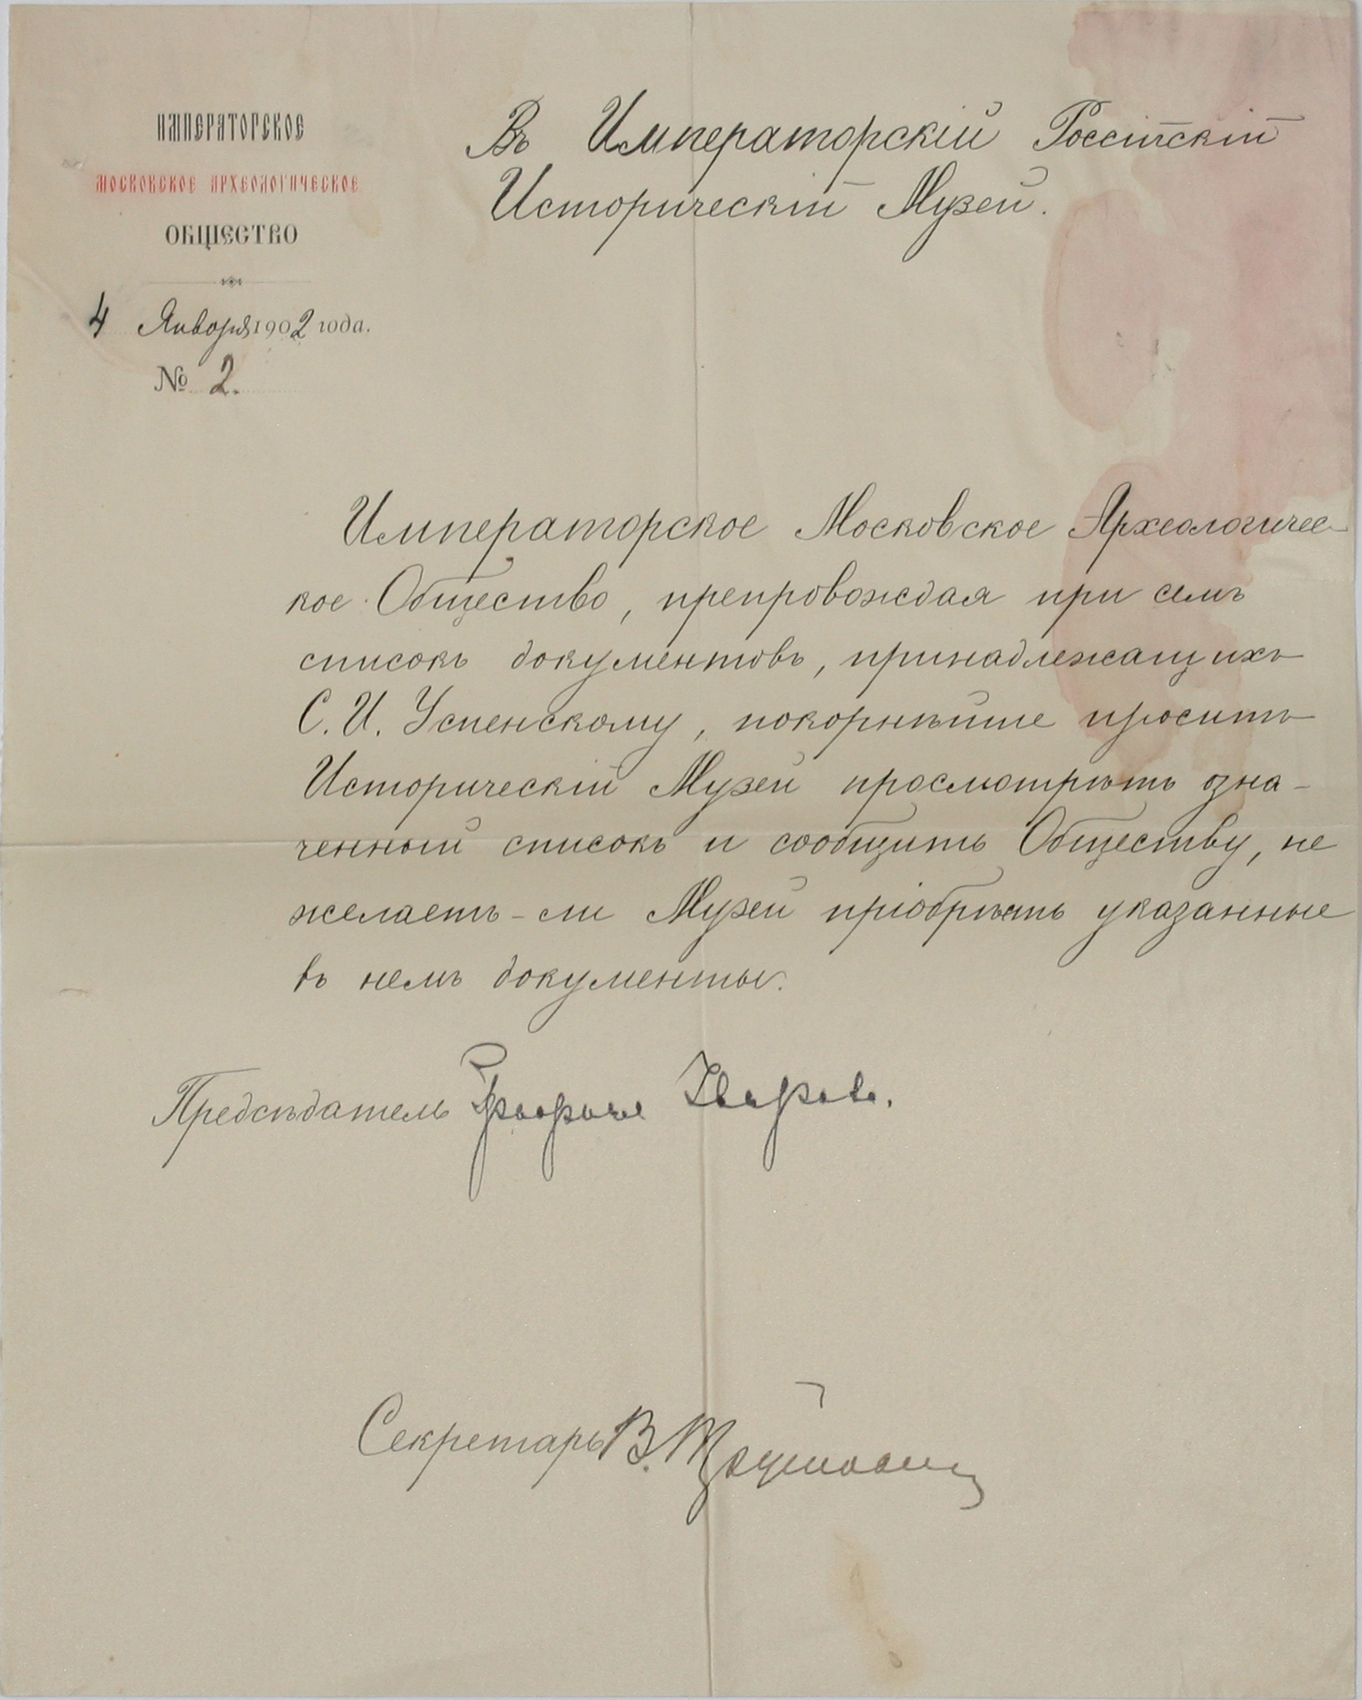 ИМПЕРАТОРСКОЕ
МОСКОВСКОЕ АРХЕОЛОГИЧЕСКОЕ
ОБЩЕСТВО
4 Января 1902 года.
№ 2.
Въ Императорскій Россійскій
Историческій Музей.
Императорское Московское Археологичес-
кое Общество, препровождая при семъ
списокъ документовъ, принадлежащихъ
С. И. Успенскому, покорнѣйше проситъ
Историческій Музей просмотрѣть озна-
ченный списокъ и сообщить Обществу, не
желаетъ-ли Музей пріобрѣсть указанные
въ немъ документы.
Предсѣдатель Графиня Уварова.
Секретарь В. Трутовскій